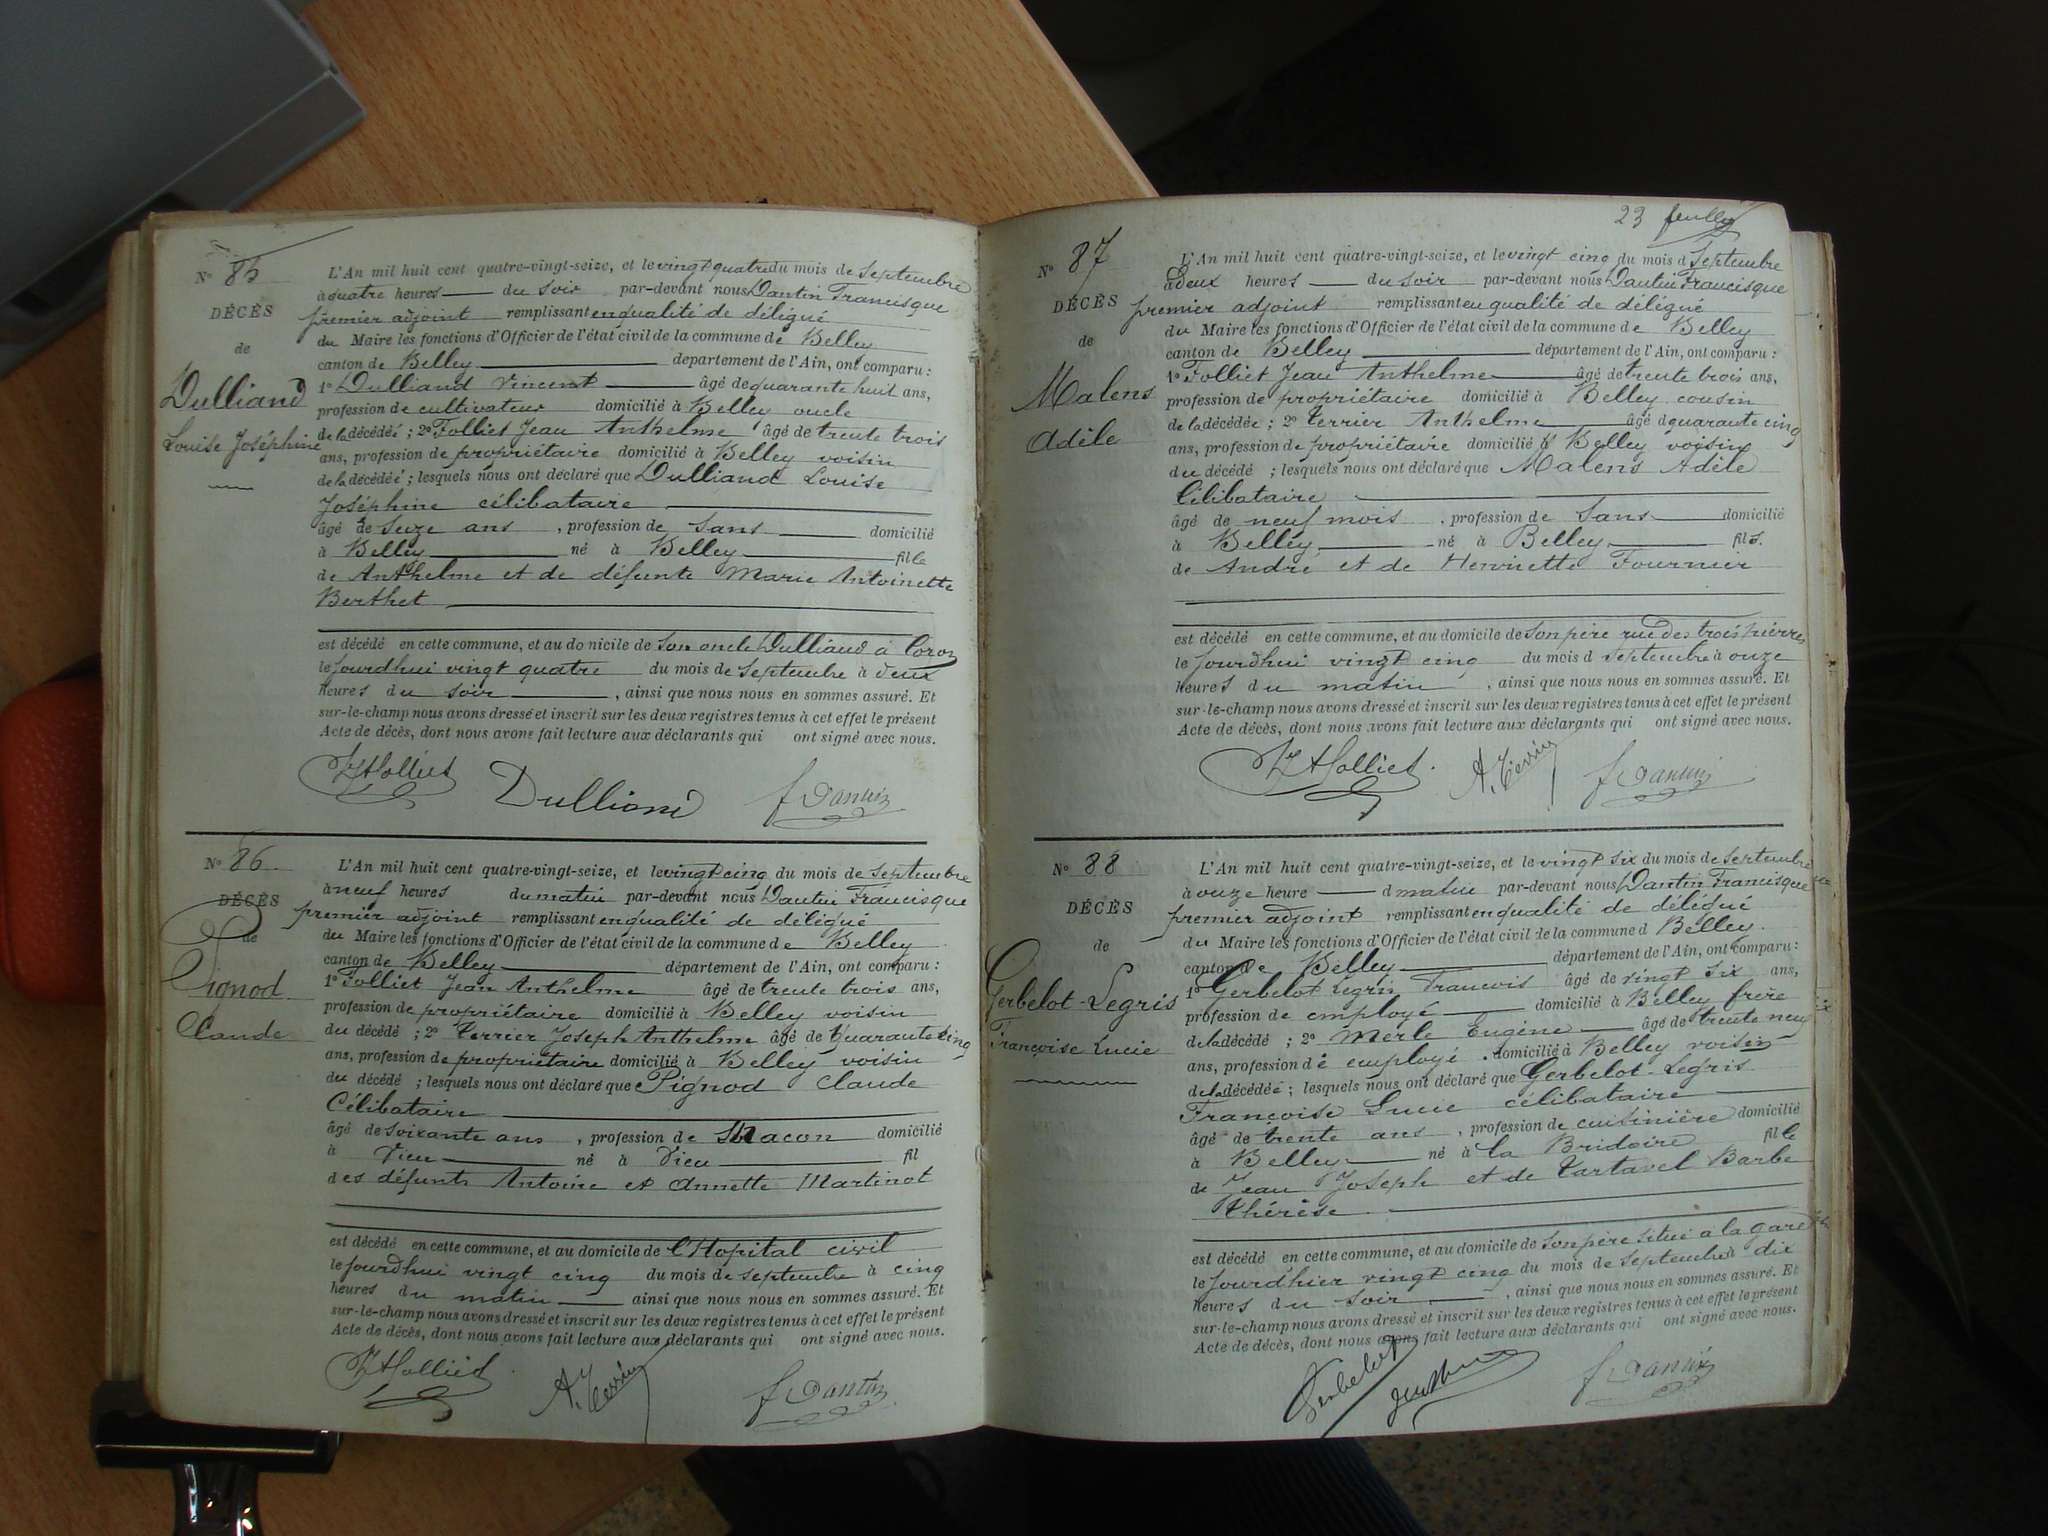 N° 85
DÉCÈS
de
Dulliand
Louise Joséphine
L'An mil huit cent quatre-vingt-seize, et le vingt quatre du mois de Septembre
à quatre heures du soir par-devant nous Dantin Francisque
premier adjoint remplissant en qualité de délégué
du Maire les fonctions d'Officier de l'état civil de la commune de Belley
canton de Belley département de l'Ain, ont comparu :
1° Dulliand Vincent âgé de quarante huit ans,
profession de cultivateur domicilié à Belley oncle
de la décédée ; 2° Folliet Jean Anthelme âgé de trente trois
ans, profession de propriétaire domicilié à Belley voisin
de la décédée ; lesquels nous ont déclaré que Dulliand Louise
Joséphine célibataire
âgé de Seize ans , profession de Sans domicilié
à Belley né à Belley fille
de Anthelme et de défunte Marie Antoinette
Berthet
est décédé en cette commune, et au domicile de Son oncle Dulliand à Coron
le jourdhui vingt quatre du mois de Septembre à deux
heures du soir , ainsi que nous nous en sommes assuré. Et
sur-le-champ nous avons dressé et inscrit sur les deux registres tenus à cet effet le présent
Acte de décès, dont nous avons fait lecture aux déclarants qui ont signé avec nous.
Folliet Dulliand F Dantin
N° 86
DÉCÈS
de
Pignod
Claude
L'An mil huit cent quatre-vingt-seize, et le vingt cinq du mois de Septembre
à neuf heures du matin par-devant nous Dantin Francisque
premier adjoint remplissant en qualité de délégué
du Maire les fonctions d'Officier de l'état civil de la commune de Belley
canton de Belley département de l'Ain, ont comparu :
1° Folliet Jean Anthelme âgé de trente trois ans,
profession de propriétaire domicilié à Belley voisin
du décédé ; 2° Terrier Joseph Anthelme âgé de quarante cinq
ans, profession de propriétaire domicilié à Belley voisin
du décédé ; lesquels nous ont déclaré que Pignod Claude
Célibataire
âgé de soixante ans , profession de Macon domicilié
à Vieu né à Vieu fil
des défunts Antoine et Annette Martinot
est décédé en cette commune, et au domicile de l'Hopital civil
le jourdhui vingt cinq du mois de septembre à cinq
heures du matin ainsi que nous nous en sommes assuré. Et
sur-le-champ nous avons dressé et inscrit sur les deux registres tenus à cet effet le présent
Acte de décès, dont nous avons fait lecture aux déclarants qui ont signé avec nous.
Folliet A. Terrier F Dantin
23
N° 87
DÉCÈS
de
Malens
Adèle
L'An mil huit cent quatre-vingt-seize, et le vingt cinq du mois d Septembre
à deux heures du soir par-devant nous Dantin Francisque
premier adjoint remplissant en qualité de délégué
du Maire les fonctions d'Officier de l'état civil de la commune de Belley
canton de Belley département de l'Ain, ont comparu :
1° Folliet Jean Anthelme âgé de trente trois ans,
profession de propriétaire domicilié à Belley cousin
de la décédée ; 2° Terrier Anthelme âgé quarante cinq
ans, profession de propriétaire domicilié à Belley voisin
du décédé ; lesquels nous ont déclaré que Malens Adèle
Célibataire
âgé de neuf mois , profession de Sans domicilié
à Belley né à Belley fils
de André et de Henriette Fournier
est décédé en cette commune, et au domicile de Son père rue des trois pierres
le jourdhui vingt cinq du mois d septembre à onze
heures du matin , ainsi que nous nous en sommes assuré. Et
sur-le-champ nous avons dressé et inscrit sur les deux registres tenus à cet effet le présent
Acte de décès, dont nous avons fait lecture aux déclarants qui ont signé avec nous.
Folliet A. Terrier F Dantin
N° 88
DÉCÈS
de
Gerbelot-Legris
Françoise Lucie
L'An mil huit cent quatre-vingt-seize, et le vingt six du mois de Septembre
à onze heure d matin par-devant nous Dantin Francisque
premier adjoint remplissant en qualité de délégué
du Maire les fonctions d'Officier de l'état civil de la commune d Belley
canton de Belley département de l'Ain, ont comparu :
1° Gerbelot Legris Francois âgé de vingt six ans,
profession de employé domicilié à Belley frère
de la décédé ; 2° Merle Eugène âgé de trente neuf
ans, profession de employé domicilié à Belley voisin
de la décédée ; lesquels nous ont déclaré que Gerbelot-Legris
Françoise Lucie célibataire
âgé de trente ans , profession de cuisinière domicilié
à Belley né à la Bridoire fille
de Jean Joseph et de Tartavel Barbe
Thérèse
est décédé en cette commune, et au domicile de Son père situé à la gare
le jourdhier vingt cinq du mois de septembre à dix
heures du soir , ainsi que nous nous en sommes assuré. Et
sur-le-champ nous avons dressé et inscrit sur les deux registres tenus à cet effet le présent
Acte de décès, dont nous avons fait lecture aux déclarants qui ont signé avec nous.
Gerbelot F Dantin